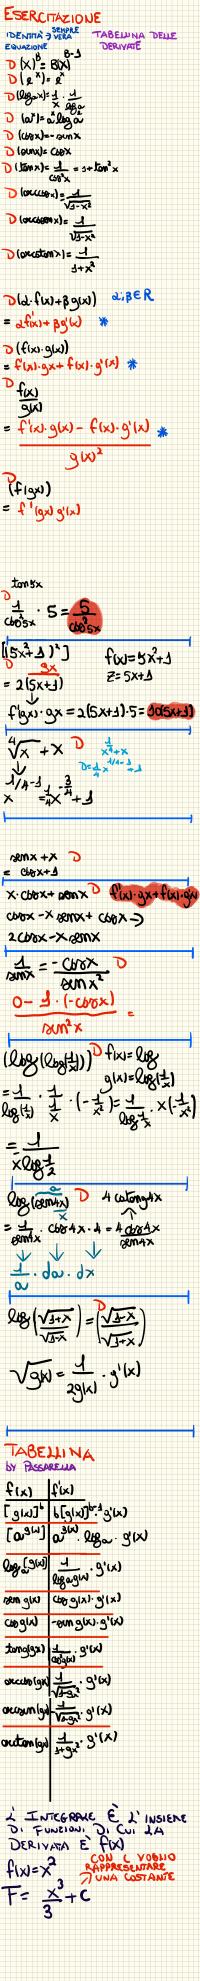 ESERCITAZIONE
IDENTITÀ = SEMPRE VERA
EQUAZIONE
TABELLINA DELLE DERIVATE
D (x)^B = B(x)^B-1
D (e^x) = e^x
D (log_a x) = 1/x · 1/log a
D (a^x) = a^x log a
D (cos x) = -sen x
D (sin x) = cos x
D (tan x) = 1/cos²x = 1 + tan²x
D (arccos x) = 1/√1-x²
D (arcsen x) = 1/√1-x²
D (arcotan x) = 1/1+x²
D (α·f(x) + β g(x)) α; β ∈ R
= α f'(x) + β g'(x) *
D (f(x)·g(x))
= f'(x)·gx + f(x)·g'(x) *
D f(x)/g(x)
= f'(x)·g(x) - f(x)·g'(x) / g(x)² *
D (f(gx)
= f'(gx) g'(x)
D tan5x
1/cos²5x · 5 = 5/cos²5x
[(5x²+1)²] f(x) = 5x²+1
D gx z = 5x+1
= 2(5x+1)
f'(gx)·gx = 2(5x+1)·5 = 10(5x+1)
∜x + x D x^1/4 + x
D = 1/4 x^1/4-1 + 1
x^1/4-1 = 1/4 x^-3/4 + 1
sen x + x D
= cos x + 1
x·cos x + sen x D f'(x)·gx + f(x)·gx
cos x - x sen x + cos x ->
2cos x - x sen x
1/sin x = -cos x/sen x² D
0 - 1·(-cos x)/sin²x =
(log(log(1/x))) D f(x) = log
g(x) = log(1/x)
= 1/log(1/x) · 1/1/x · (-1/x²) = 1/log 1/x · x(-1/x²)
= 1/x log 1/2
log(sen4x) D 4 cotang4x
= 1/sen4x · cos4x · 4 = 4cos4x/sen4x
1/a · da · dx
log(√1+x/√1-x) = D (√1-x/√1+x)
√g(x) = 1/2g(x) · g'(x)
TABELLINA
BY PASSARELLA
f(x) f'(x)
[g(x)]^b b[g(x)]^b-1 · g'(x)
[a^g(x)] a^g(x) · log a · g'(x)
log_a [g(x)] 1/log a g(x) · g'(x)
sen g(x) cos g(x) · g'(x)
cos g(x) -sen g(x) · g'(x)
tang(gx) 1/cos²g(x) · g'(x)
arccos(gx) 1/√1-gx² · g'(x)
arcsen(gx) -1/√1-gx² · g'(x)
arctan(gx) 1/1+gx² · g'(x)
L'INTEGRALE È L'INSIEME
DI FUNZIONI DI CUI LA
DERIVATA È f(x)
f(x) = x² CON C VOGLIO RAPPRESENTARE
F = x³/3 + C UNA COSTANTE